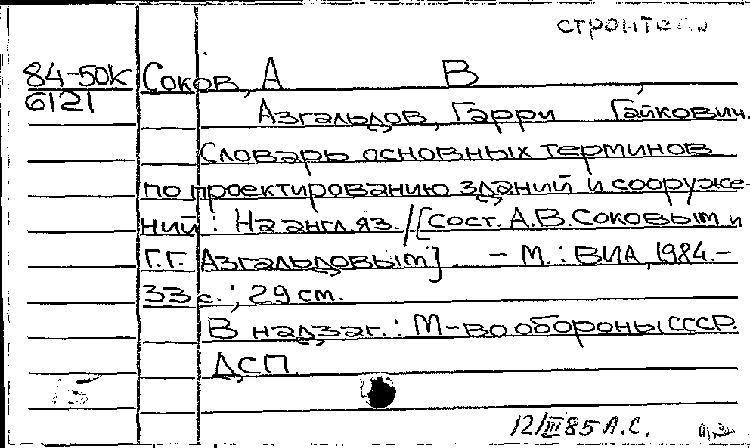 строитель
84-50К Соков, А В
6121
Азгальдов, Гарри Гайкович.
Словарь основных терминов
по проектированию зданий и сооруже-
ний: На англ. яз. / [сост. А.В. Соковым и
Г.Г. Азгальдовым] – М.: ВИА, 1984.–
33 с.; 29 cm.
В надзаг.: М-во обороны СССР.
ДСП.
15
12/III 85 А.С.